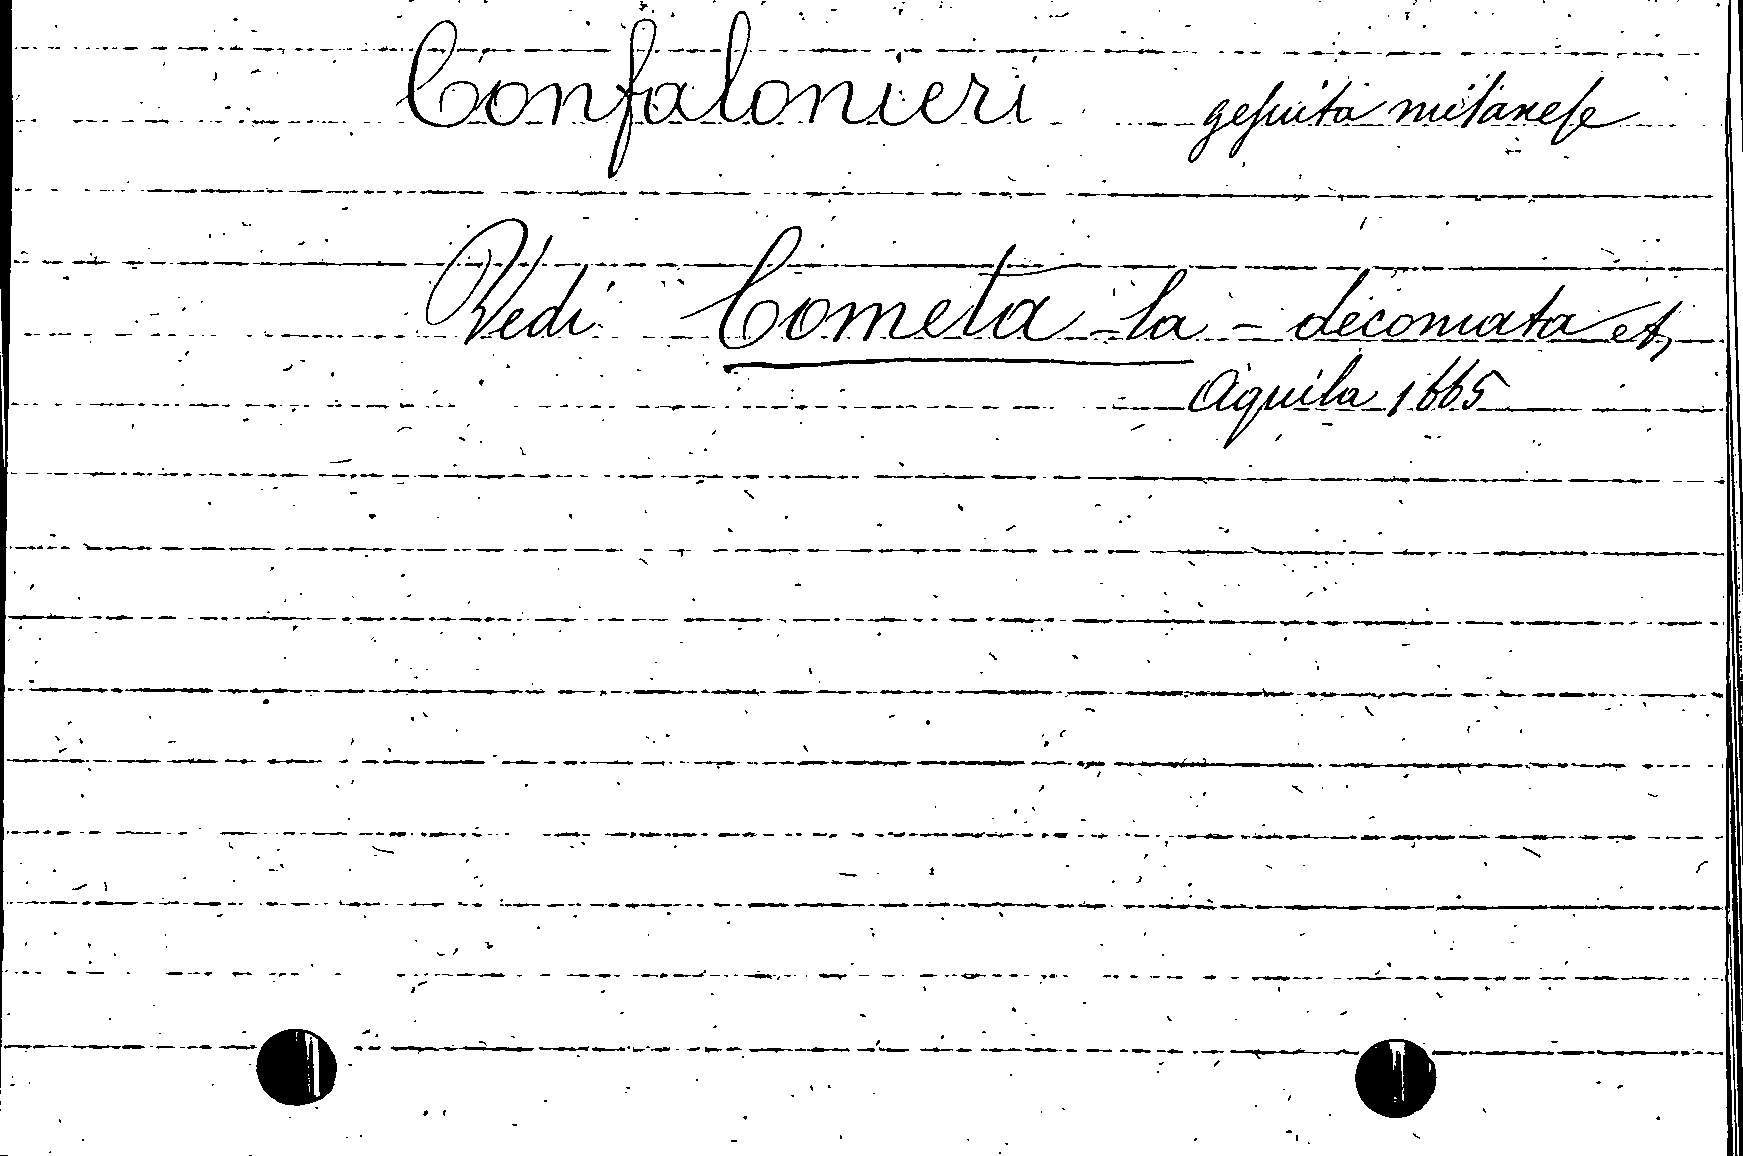 Confalonieri gesuita milanese
Vedi Cometa - la - decomata et,
Aquila 1665